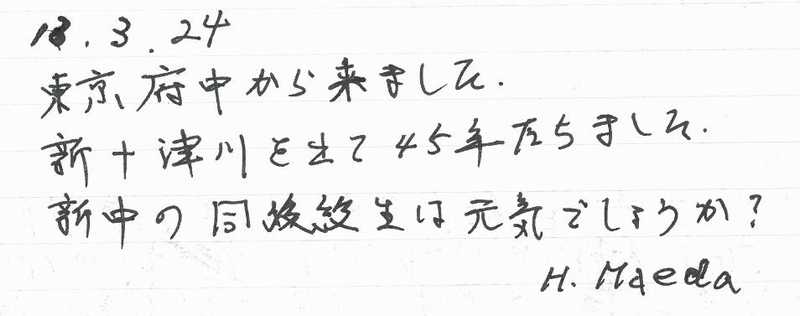 18.3.24
東京、府中から来ました.
新十津川を出て45年たちました.
新中の同級生は元気でしょうか?
H. Maeda